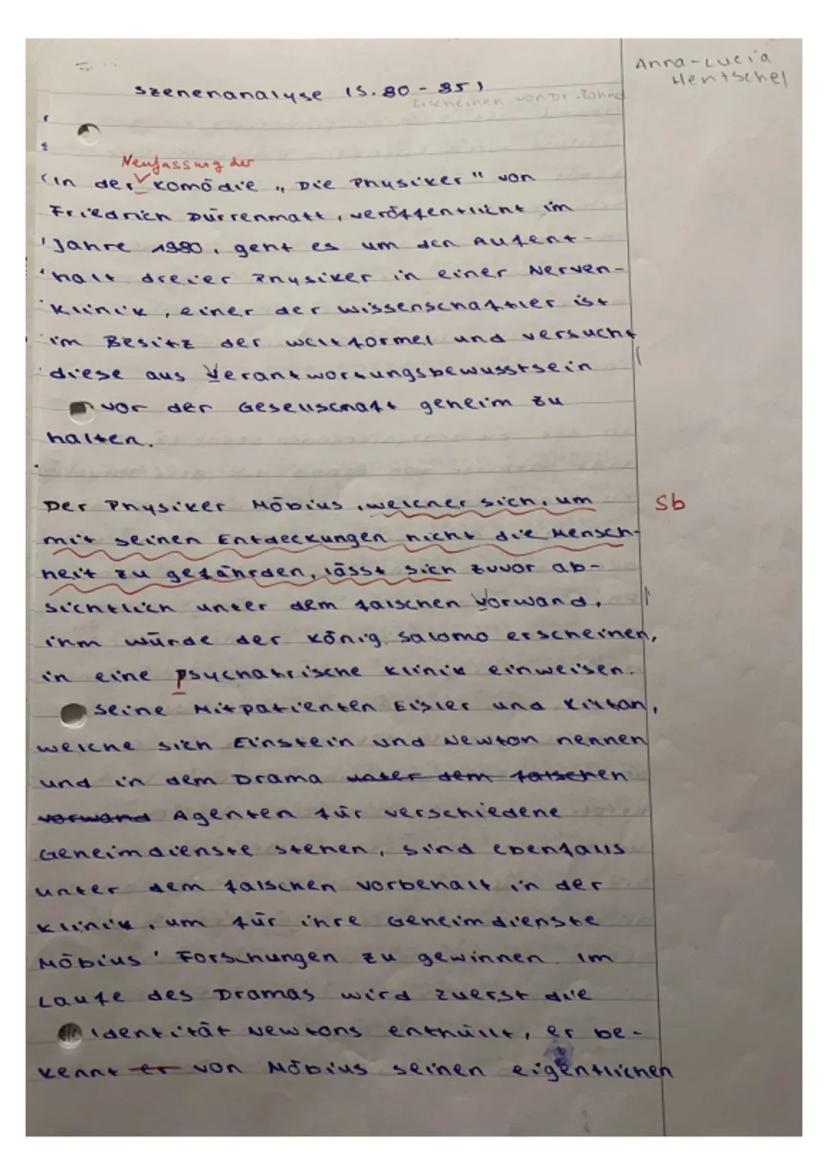 Anna-Lucia
Hentschel
Szenenanalyse (S. 80 - 85)
Erscheinen von Dr. Zahnd
Neufassung der
In der Komödie „Die Physiker" von
Friedrich Dürrenmatt, veröffentlicht im
Jahre 1980, geht es um den Aufent-
halt dreier Physiker in einer Nerven-
klinik, einer der Wissenschaftler ist
im Besitz der Weltformel und versucht
diese aus Verantwortungsbewusstsein
vor der Gesellschaft geheim zu
halten.
Der Physiker Möbius, welcher sich, um
Sb
mit seinen Entdeckungen nicht die Mensch-
heit zu gefährden, lässt sich zuvor ab-
sichtlich unter dem falschen Vorwand,
ihm würde der König Salomo erscheinen,
in eine psychatrische Klinik einweisen.
Seine Mitpatienten Eisler und Kilton,
welche sich Einstein und Newton nennen
und in dem Drama unter dem falschen
vorwand Agenten für verschiedene
Geheimdienste stehen, sind ebenfalls
unter dem falschen Vorbehalt in der
Klinik, um für ihre Geheimdienste
Möbius' Forschungen zu gewinnen. Im
Laufe des Dramas wird zuerst die
Identität Newtons enthüllt, er be-
kennt er von Möbius seinen eigentlichen